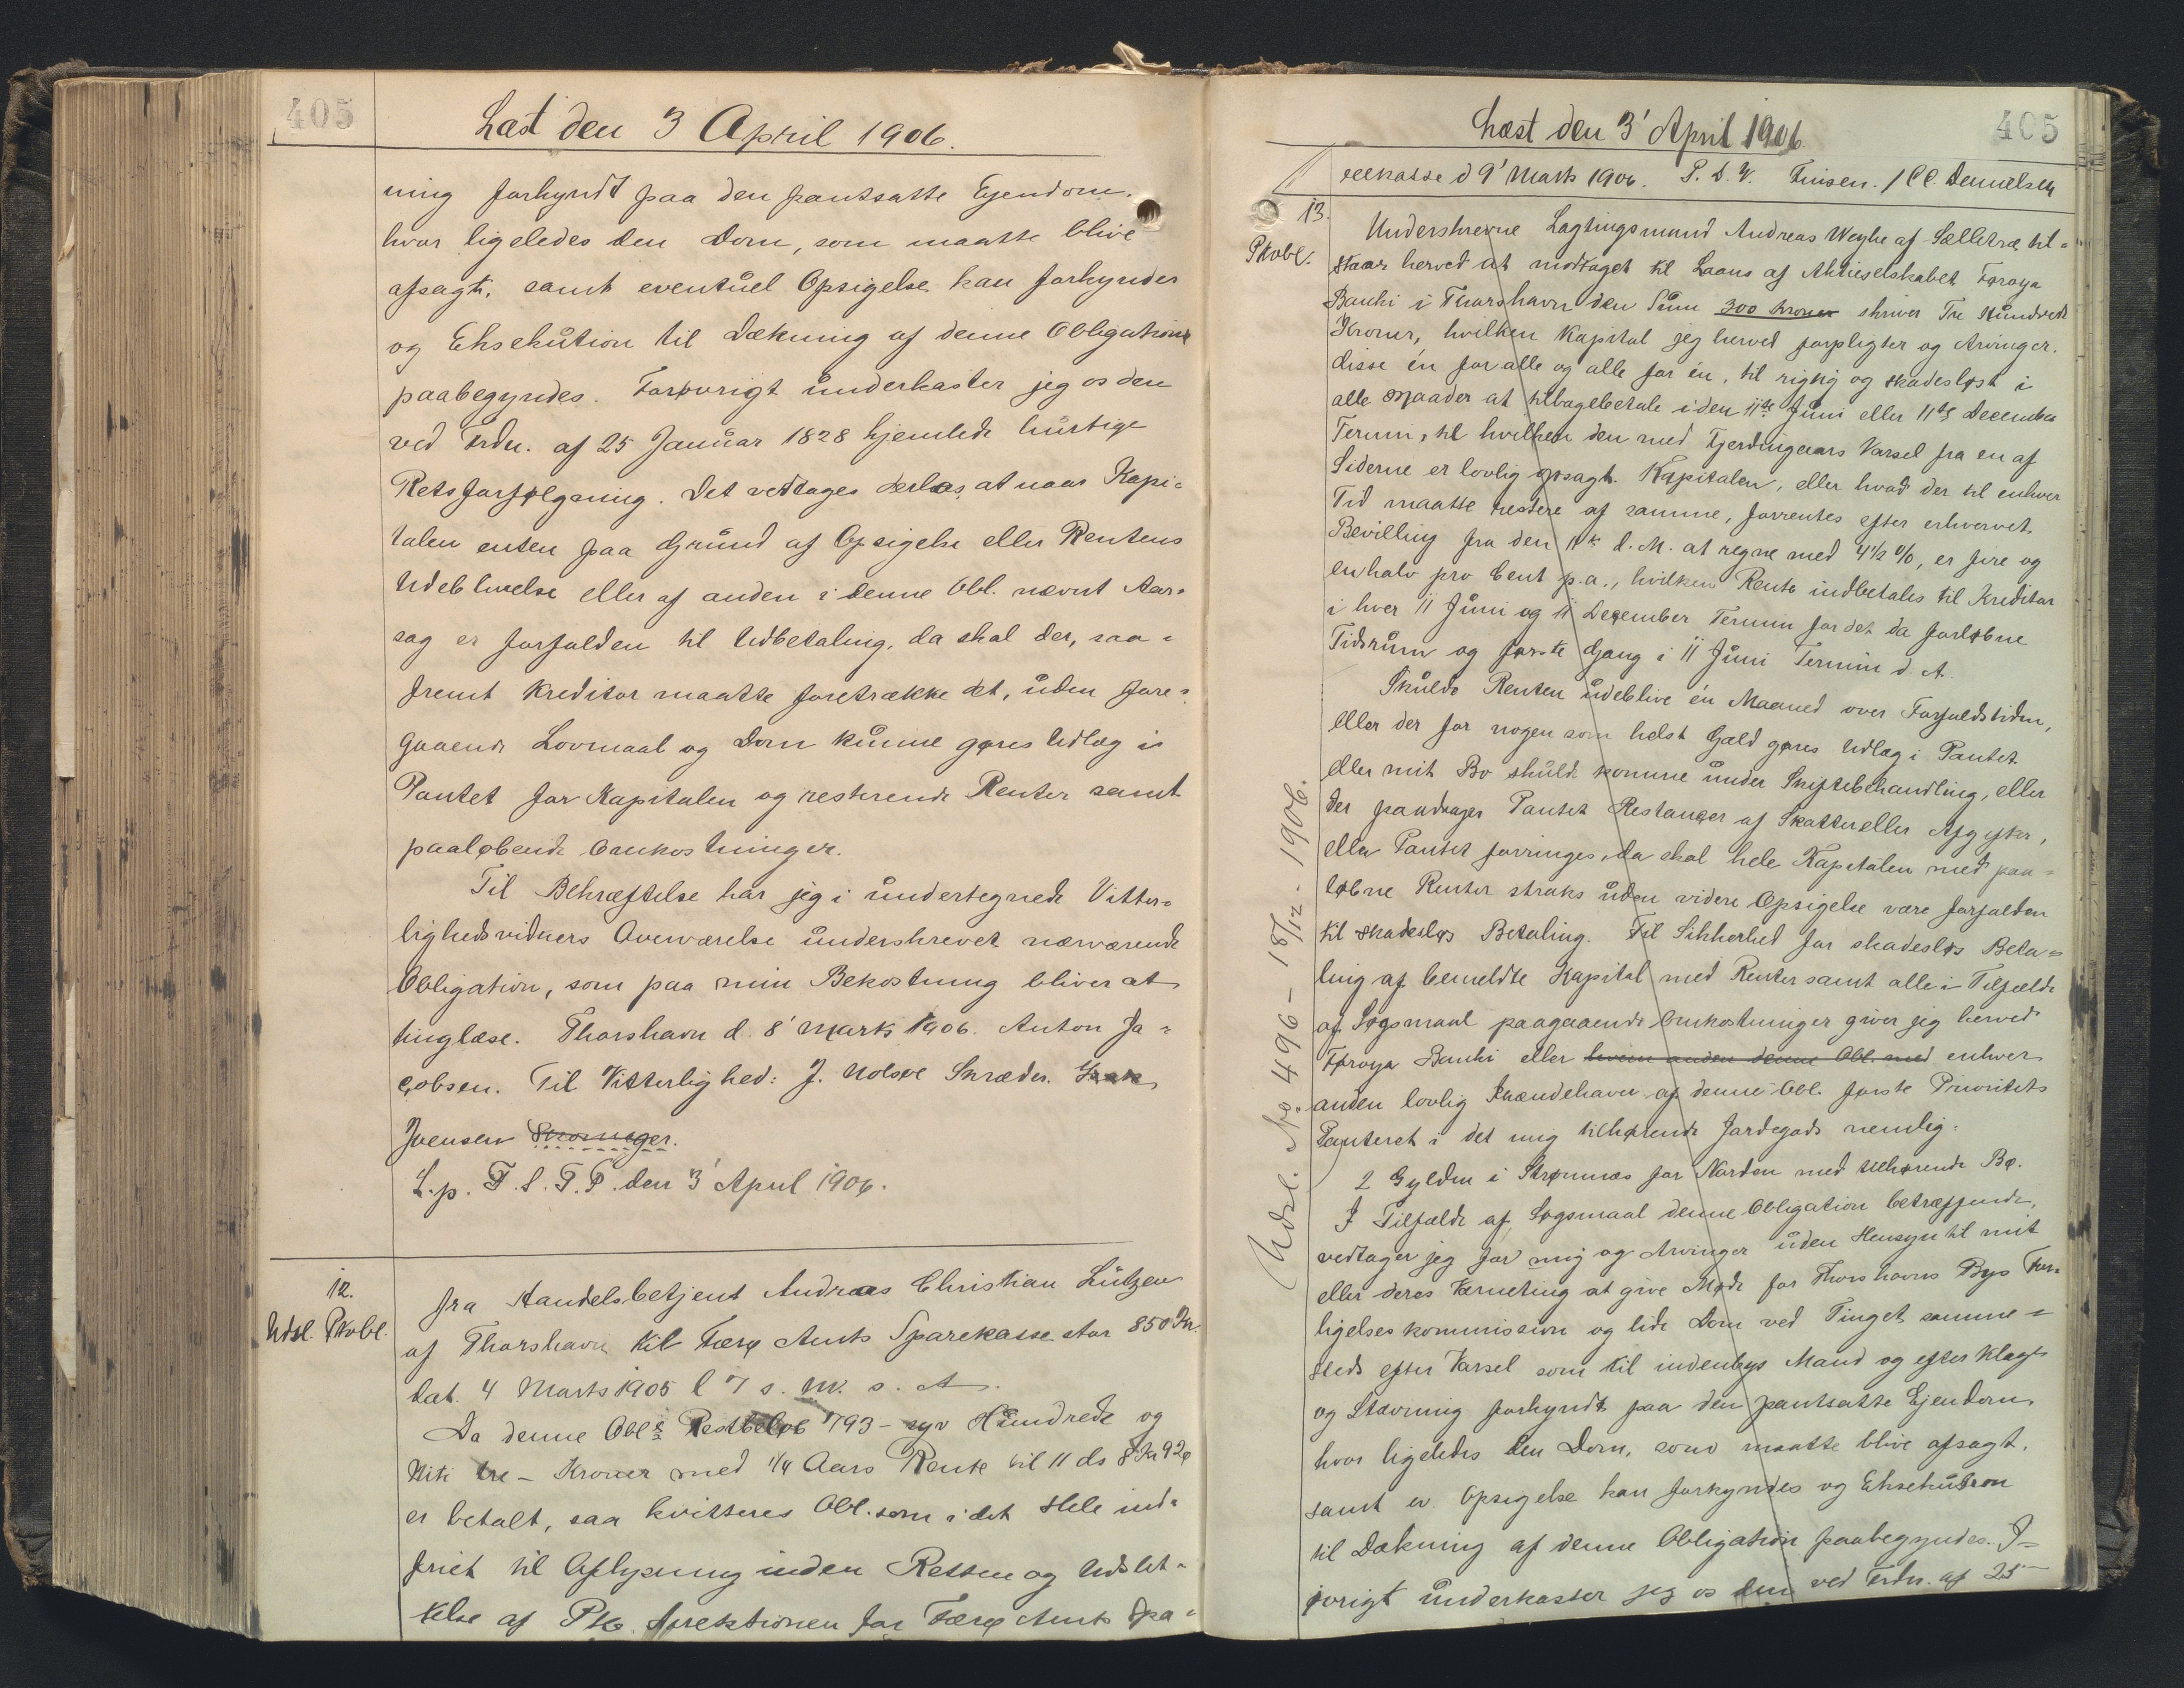 405
Læst den 3 April 1906.
ning forkyndt paa den pantsatte Ejendom.
hvor ligeledes den Dom, som maatte blive
afsagt, samt eventuel Opsigelse kan forkyndes
og Eksekution til Dækning af denne Obligation
paabegyndes. Forøvrigt underkaster jeg os den
ved Frdn. af 25 Januar 1828 hjemlede hurtige
Retsforfølgning. Det vedtages derhos, at naar Kapi=
talen enten paa Grund af Opsigelse eller Rentens
Udeblivelse eller af anden i denne Obl. nævnt Aar=
sag er forfalden til Udbetaling, da skal der, saa=
fremt Kreditor maatte foretrække det, uden fore=
gaaende Lovmaal og Dom kunne gøres Udlæg i
Pantet for Kapitalen og resterende Renter samt
paaløbende Omkostninger.
Til Bekræftelse har jeg i undertegnede Vitter=
lighedsvidners Overværelse underskrevet nærværende
Obligation, som paa min Bekostning bliver at
tinglæse. Thorshavn d. 8' Marts 1906. Anton Ja=
cobsen. Til Vitterlighed: J. Nolsøe Skræder.
Joensen
L.p. F. S. T. P. den 3' April 1906.
12.
Udsl. Pkobl.
fra Handelsbetjent Andreas Christian Lützen
af Thorshavn til Færø Amts Sparekasse stor 850 Kr.
dat. 4 Marts 1905 l 7 s. M. s. A.
Da denne Obls Restbeløb 793 - syv Hundrede og
Niti tre - Kroner med 1/4 Aars Rente til 11 ds 8 Kr 92 ø
er betalt, saa kvitteres Obl. som i det Hele ind=
friet til Aflysning inden Retten og Udslet=
telse af Pk. Direktionen for Færø Amts Spa=
405
Læst den 3' April 1906
rekasse d 9' Marts 1906. P. D. V. Finsen. / CC. Danielsen
13.
Pkobl.
Underskrevne Lagtingsmand Andreas Weyhe af Selletræ til=
staar herved at modtaget til Laans af Aktieselskabet Føroya
Banki i Thorshavn den Sum 300 Kroner skriver Tre Hundrede
Kroner, hvilken Kapital jeg herved forpligter og Arvinger,
disse én for alle og alle for én, til rigtig og skadesløst i
alle Maader at tilbagebetale i den 11te Juni eller 11te December
Termin, til hvilken den med Fjerdingaars Varsel fra en af
Siderne er lovlig opsagt. Kapitalen, eller hvad der til enhver
Tid maatte restere af samme, forrentes efter erhvervet
Bevilling fra den 11te d. M. at regne med 4 1/2 %, er fire og
en halv pro Cent p.a., hvilken Rente indbetales til Kreditor
i hver 11 Juni og 11 December Termin for det da forløbne
Tidsrum og første Gang i 11 Juni Termin d. A.
Skulde Renten udeblive én Maaned over Forfaldstiden,
eller der for nogen som helst Gæld gøres Udlæg i Pantet
eller mit Bo skulde komme under Skiftebehandling, eller
der paadrages Pantet Restancer af Skatter eller Afgifter,
eller Pantet forringes, da skal hele Kapitalen med paa=
løbne Renter straks uden videre Opsigelse være forfalden
til skadesløs Betaling. Til Sikkerhed for skadesløs Beta=
ling af bemeldte Kapital med Renter samt alle i Tilfælde
af Søgsmaal paagaaende Omkostninger giver jeg herved
Føroya Banki eller hvem anden denne Obl. med enhver
anden lovlig Ihændehaver af denne Obl. første Prioritets
Panteret i det mig tilhørende Jordegods nemlig:
2 Gylden i Strømnæs for Norden med tilhørende Bø.
I Tilfælde af Søgsmaal denne Obligation betræffende,
vedtager jeg for mig og Arvinger uden Hensyn til mit
eller deres Værneting at give Møde for Thorshavns Bys For=
ligelseskommission og lide Dom ved Tinget samme=
steds efter Varsel som til indenbys Mand og efter Klage
og Stævning forkyndt paa den pantsatte Ejendom
hvor ligeledes den Dom, som maatte blive afsagt,
samt ev. Opsigelse kan forkyndes og Eksekution
til Dækning af denne Obligation paabegyndes. I=
øvrigt underkaster jeg os den ved Frdn. af 25
Udsl. No. 496 - 18/12 - 1906.